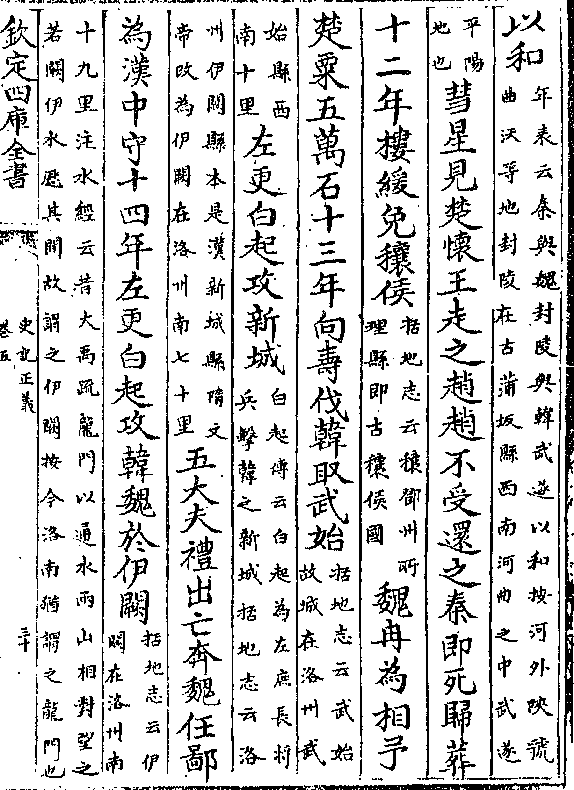 以和年表云秦與魏封陵與韓武遂以和按河外陜虢
曲沃等地封陵在古蒲坂縣西南河曲之中武遂
平陽
地也彗星見楚懷王走之趙趙不受還之秦即死歸葬
十二年樓緩免穰侯括地志云穰鄧州所
理縣即古穰侯國魏冉為相予
楚粟五萬石十三年向壽伐韓取武始括地志云武始
故城在洛州武
始縣西
南十里左更白起攻新城白起傳云白起為左庶長將
兵擊韓之新城括地志云洛
州伊闕縣本是漢新城縣隋文
帝改為伊闕在洛州南七十里五大夫禮出亡奔魏任鄙
為漢中守十四年左更白起攻韓魏於伊闕括地志云伊
闕在洛州南
十九里注水經云昔大禹疏龍門以通水兩山相對望之
若闕伊水歷其間故謂之伊闕按今洛南猶謂之龍門也
欽定四庫全書
史記正義
卷五
三十